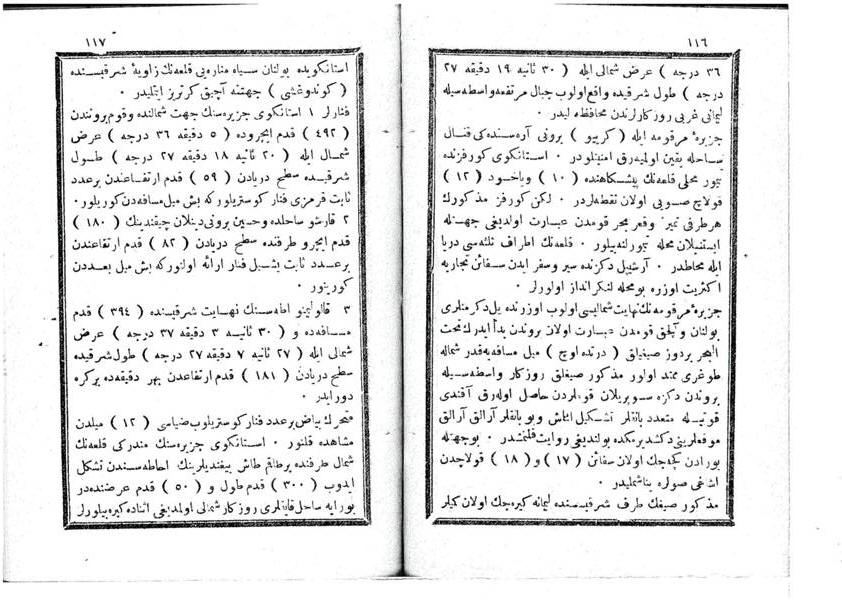 ١١٦
٣٦ درجه ) عرض شمالی ایله ( ٣٠ ثانیه ١٩ دقیقه ٢٧
درجه ) طول شرقیده واقع اولوب جبال مرتفعه واسطه سیله
لیمانی غربی روزکارلرندن محافظه لیدر ٠
جزیرهٔ مرقومه ایله ( کریبو ) برونی آره سنده کی قنال
ساحله یقین اولمیه رق امنیتلودر ٠ استانکوی کورفزنده
تیمور محلی قلعه نك پیشکاهنده ( ١٠ ) ویاخود ( ١٢ )
قولاچ صویی اولان نقطه لردر ٠ لکن کورفز مذکورك
هر طرفی تمیز وقعر بحر قومدن عبارت اولدیغی جهتله
ایستنیلان محله تیمورلنه بیلور ٠ قلعه نك اطراف ثلثه سی دریا
ایله محاطدر ٠ آرشیپل دکزنده سیر وسفر ایدن سفائن تجاریه
اکثریت اوزره بو محله لنکرانداز اولورلر ٠
جزیرهٔ مرقومه نك نهایت شمالیسی اولوب اوزرنده یل دکرمنلری
بولنان و آلچق قومدن عبارت اولان بروندن بدأ ایدرك تحت
البحر بر دوز صیغلق ( درتده اوچ ) میل مسافه یه قدر شماله
طوغری ممتد اولور مذکور صیغلق روزکار واسطه سیله
بروندن دکزه سوپریلان قوملردن حاصل اوله رق آقندی
قوتیله متعدد بانقلر تشکیل ایتمش و بو بانقلر آرالق آرالق
موقعلرینی دکشدیرمکده بولندیغی روایت قلنمشدر ٠ بوجهتله
بورادن کچه جك اولان سفائن ( ١٧ ) و ( ١٨ ) قولاچدن
اشاغی صولره یناشمملیدر ٠
مذکور صیغك طرف شرقیسنده لیمانه کیره جك اولان کمیلر
١١٧
استانکویده بولنان سیاه مناره یی قلعه نك زاویهٔ شرقیسنده
( کوندوغشی ) جهتنه آچیق کوتریز ایتملیدر ٠
فنارلر ١ استانکوی جزیره سنك جهت شمالنده و قوم بروندن
( ٤٩٢ ) قدم ایچروده ( ٥ دقیقه ٣٦ درجه ) عرض
شمالی ایله ( ٢٠ ثانیه ١٨ دقیقه ٢٧ درجه ) طول
شرقیده سطح دریادن ( ٥٩ ) قدم ارتفاعندن بر عدد
ثابت قرمزی فنار کوستریلور که بش میل مسافه دن کوریلور ٠
٢ قارشو ساحلده وحسین برونی دینلان چیقندینك ( ١٨٠ )
قدم ایچرو طرفنده سطح دریادن ( ٨٢ ) قدم ارتفاعندن
بر عدد ثابت یشیل فنار ارائه اولنور که بش میل بعددن
کورینور ٠
٣ قالولیمنو اطه سنك نهایت شرقیسنده ( ٣٩٤ ) قدم
مسافه ده و ( ٣٠ ثانیه ٣ دقیقه ٣٧ درجه ) عرض
شمالی ایله ( ٢٧ ثانیه ٧ دقیقه ٢٧ درجه ) طول شرقیده
سطح دریادن ( ١٨١ ) قدم ارتفاعندن بهر دقیقه ده بر کره
دور ایدر ٠
متحرك بیاض بر عدد فنار کوستریلوب ضیاسی ( ١٢ ) میلدن
مشاهده قلنور ٠ استانکوی جزیره سنك مندرکی قلعه نك
شمال طرفنده بر طاقم طاش ییغندیلرینك احاطه سندن تشکل
ایدوب ( ٣٠٠ ) قدم طول و ( ٥٠ ) قدم عرضنده در
بورایه ساحل قایقلری روزکار شمالی اولمدیغی اثناده کیره بیلورلر